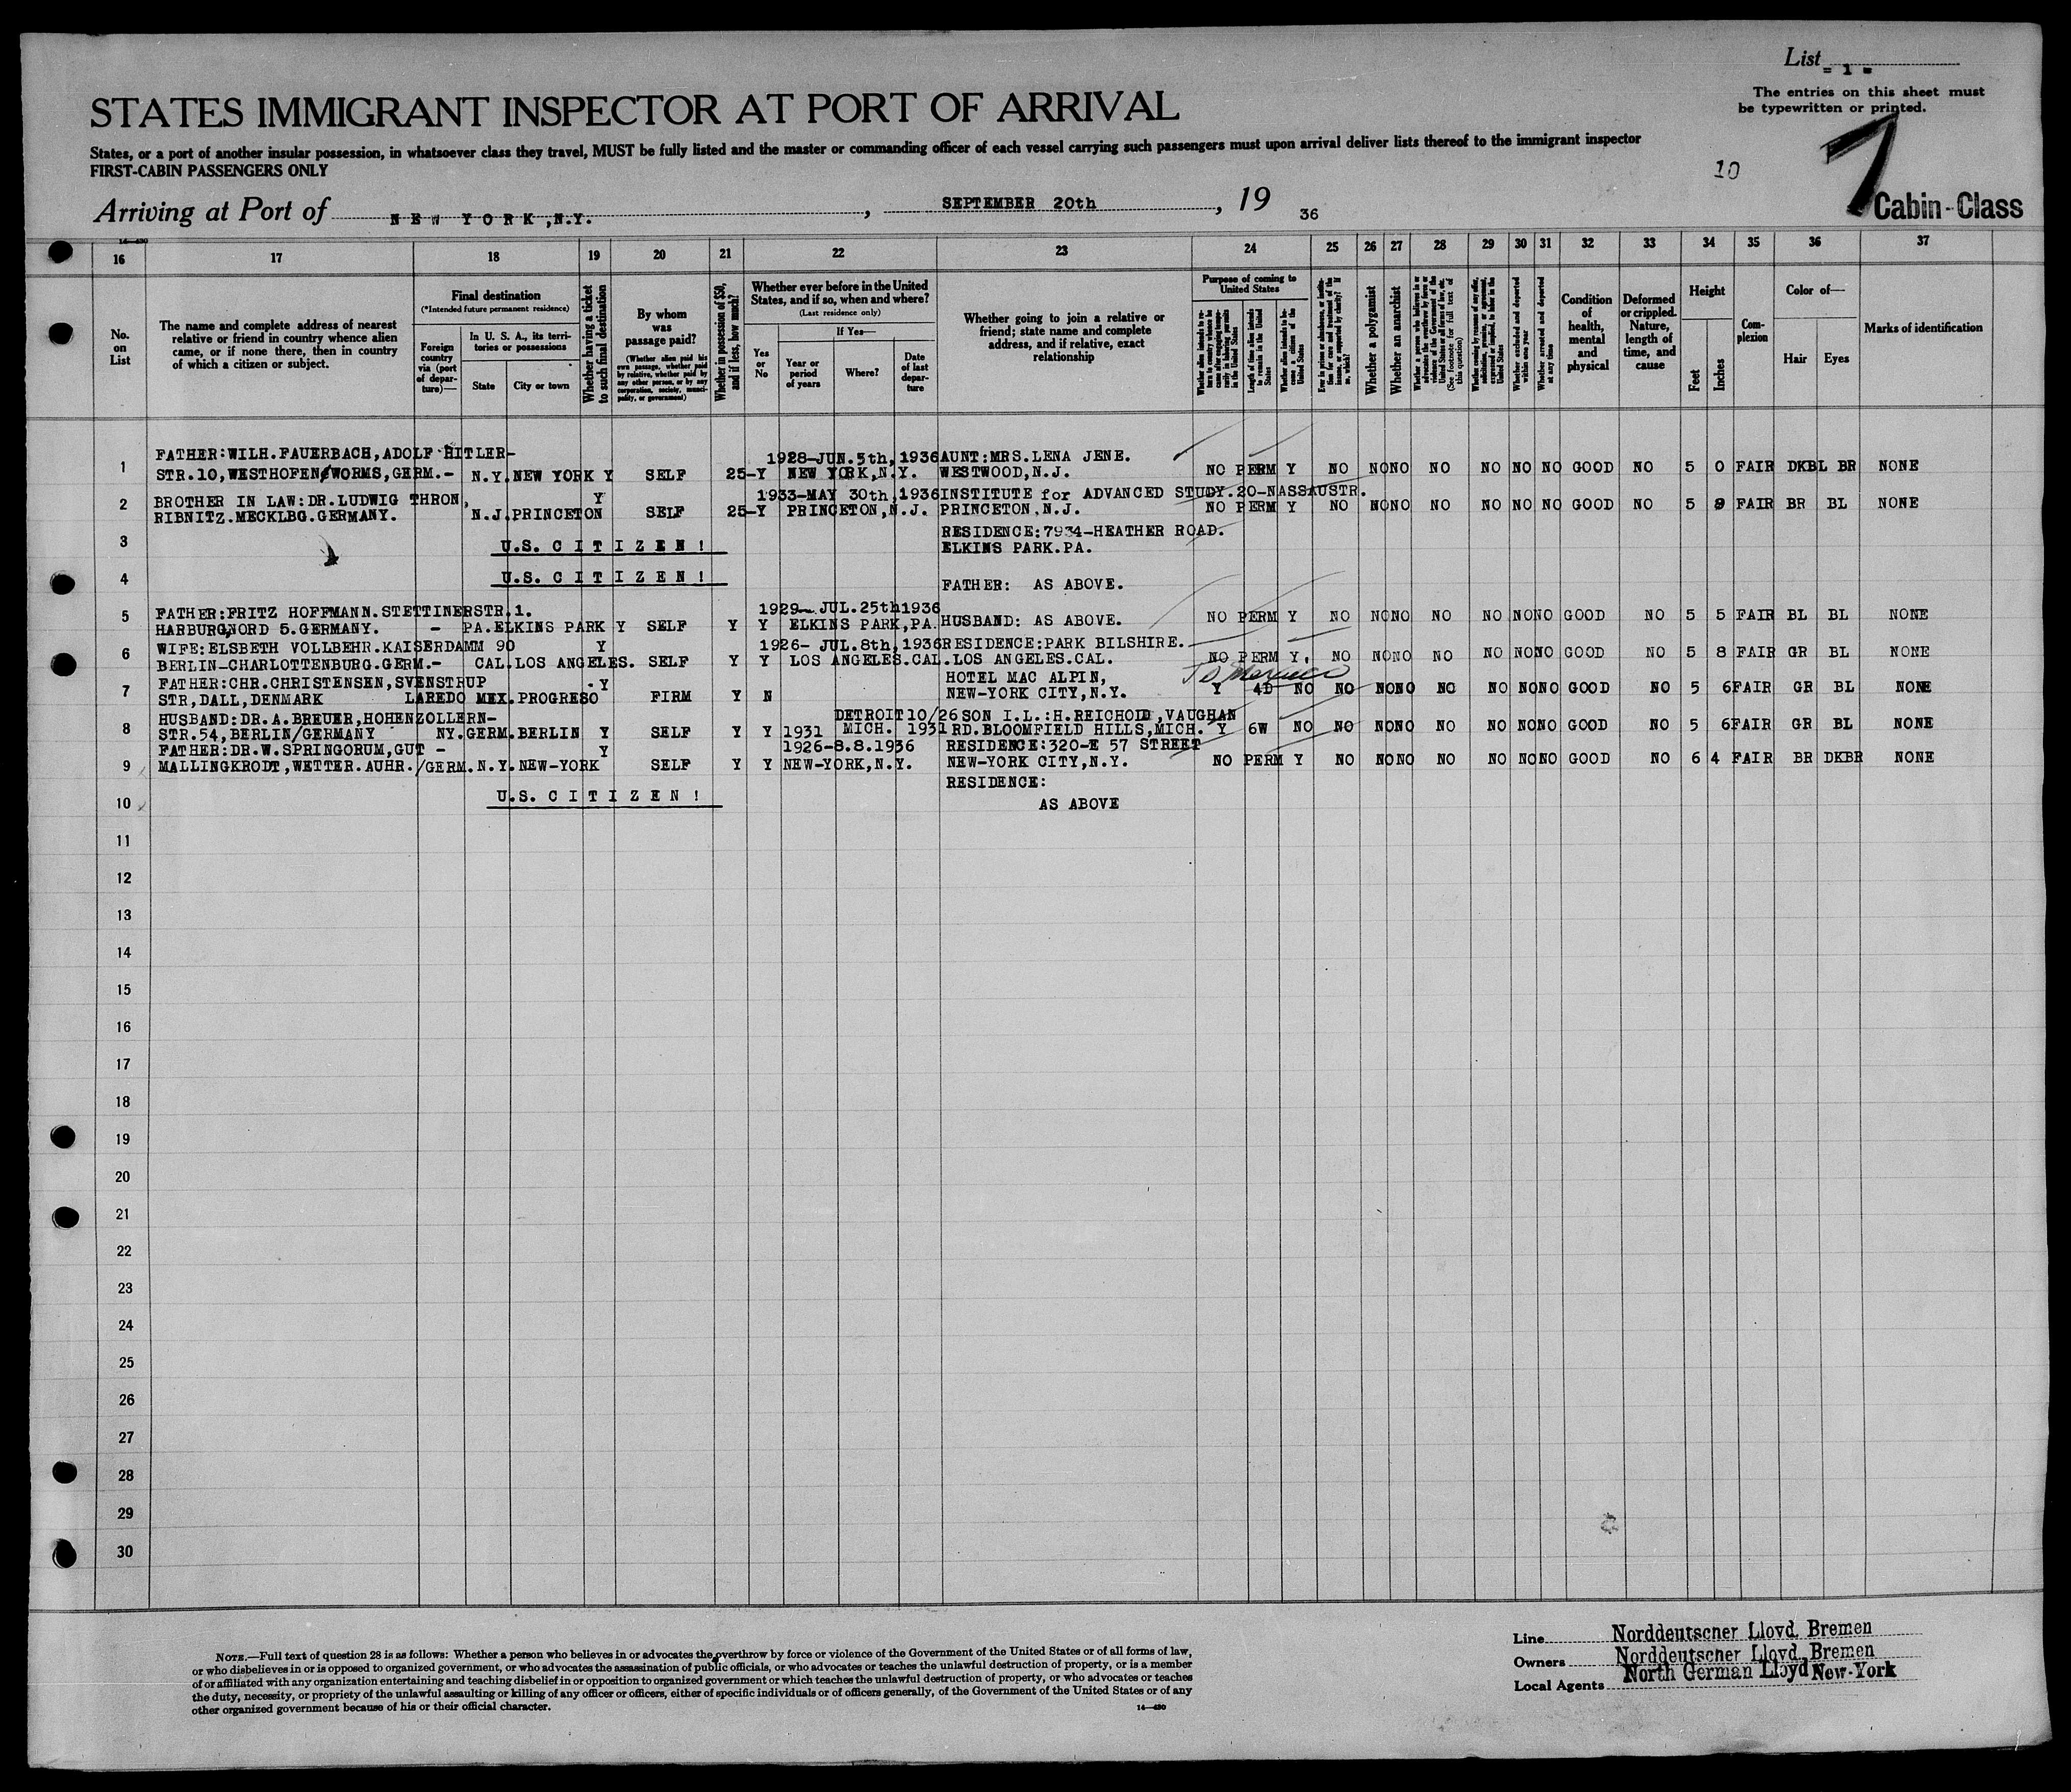 List
- 1 -
The entries on this sheet must
be typewritten or printed.
STATES IMMIGRANT INSPECTOR AT PORT OF ARRIVAL
States, or a port of another insular possession, in whatsoever class they travel, MUST be fully listed and the master or commanding officer of each vessel carrying such passengers must upon arrival deliver lists thereof to the immigrant inspector
FIRST-CABIN PASSENGERS ONLY
10
7
Cabin-Class
Arriving at Port of NEW YORK, N.Y., SEPTEMBER 20th, 19 36
14—430
16 17 18 19 20 21 22 23 24 25 26 27 28 29 30 31 32 33 34 35 36 37
No. on List
The name and complete address of nearest
relative or friend in country whence alien
came, or if none there, then in country
of which a citizen or subject.
Final destination
(*Intended future permanent residence)
Foreign country via (port of departure)—
In U. S. A., its territories or possessions
State
City or town
Whether having a ticket to such final destination
By whom was passage paid?
(Whether alien paid his own passage, whether paid by relative, whether paid by any other person, or by any corporation, society, municipality, or government)
Whether in possession of $50, and if less, how much?
Whether ever before in the United
States, and if so, when and where?
(Last residence only)
Yes or No
If Yes—
Year or period of years
Where?
Date of last departure
Whether going to join a relative or
friend; state name and complete
address, and if relative, exact
relationship
Purpose of coming to United States
Length of time alien intends to remain in the United States
Whether alien intends to become a citizen of the United States
Whether a polygamist
Whether an anarchist
(See footnote for full text of this question)
Whether excluded and deported within one year
Whether arrested and deported at any time
Condition of health, mental and physical
Deformed or crippled. Nature, length of time, and cause
Height
Feet
Inches
Complexion
Color of—
Hair
Eyes
Marks of identification
1 FATHER:WILH.FAUERBACH,ADOLF HITLER- 1928-JUN.5th,1936 AUNT:MRS.LENA JENE.
STR.10,WESTHOFEN/WORMS,GERM.- N.Y. NEW YORK Y SELF 25- Y NEW YORK,N.Y. WESTWOOD,N.J. NO PERM Y NO NO NO NO NO NO NO GOOD NO 5 0 FAIR DKBL BR NONE
2 BROTHER IN LAW:DR.LUDWIG THRON, Y 1933-MAY 30th,1936 INSTITUTE for ADVANCED STUDY.20-NASSAUSTR.
RIBNITZ.MECKLBG.GERMANY. N.J. PRINCETON SELF 25- Y PRINCETON,N.J. PRINCETON.N.J. NO PERM Y NO NO NO NO NO NO NO GOOD NO 5 FAIR BR BL NONE
3 RESIDENCE:7934-HEATHER ROAD.
U.S. CITIZEN! ELKINS PARK.PA.
4 U.S. CITIZEN! FATHER: AS ABOVE.
5 FATHER:FRITZ HOFFMANN.STETTINERSTR.1. 1929- JUL.25th1936
HARBURG,NORD 5.GERMANY. - PA. ELKINS PARK Y SELF Y Y ELKINS PARK,PA. HUSBAND: AS ABOVE. NO PERM Y NO NO NO NO NO NO NO GOOD NO 5 5 FAIR BL BL NONE
6 WIFE:ELSBETH VOLLBEHR.KAISERDAMM 90 Y 1926- JUL.8th,1936 RESIDENCE:PARK BILSHIRE.
BERLIN-CHARLOTTENBURG.GERM.- CAL. LOS ANGELES. SELF Y Y LOS ANGELES.CAL. LOS ANGELES.CAL. NO PERM Y. NO NO NO NO NO NO NO GOOD NO 5 8 FAIR GR BL NONE
To Mexico
7 FATHER:CHR.CHRISTENSEN,SVENSTRUP -Y HOTEL MAC ALPIN,
STR,DALL,DENMARK LAREDO MEX. PROGRESO FIRM Y N NEW-YORK CITY,N.Y. Y 4D NO NO NO NO NO NO NO NO GOOD NO 5 6 FAIR GR BL NONE
8 HUSBAND:DR.A.BREUER,HOHENZOLLERN- DETROIT 10/26 SON I.L.:H.REICHOLD,VAUGHAN
STR.54,BERLIN/GERMANY NY.GERM.BERLIN Y SELF Y Y 1931 MICH. 1931 RD.BLOOMFIELD HILLS,MICH. Y 6W NO NO NO NO NO NO NO NO GOOD NO 5 6 FAIR GR BL NONE
9 FATHER:DR.W.SPRINGORUM,GUT - Y 1926-8.8.1936 RESIDENCE:320-E 57 STREET
MALLINGKRODT,WETTER.AUHR./GERM. N.Y. NEW-YORK SELF Y Y NEW-YORK,N.Y. NEW-YORK CITY,N.Y. NO PERM Y NO NO NO NO NO NO NO GOOD NO 6 4 FAIR BR DKBR NONE
10 U.S. CITIZEN! RESIDENCE:
AS ABOVE
11
12
13
14
15
16
17
18
19
20
21
22
23
24
25
26
27
28
29
30
NOTE.—Full text of question 28 is as follows: Whether a person who believes in or advocates the overthrow by force or violence of the Government of the United States or of all forms of law,
or who disbelieves in or is opposed to organized government, or who advocates the assassination of public officials, or who advocates or teaches the unlawful destruction of property, or is a member
of or affiliated with any organization entertaining and teaching disbelief in or opposition to organized government or which teaches the unlawful destruction of property, or who advocates or teaches
the duty, necessity, or propriety of the unlawful assaulting or killing of any officer or officers, either of specific individuals or of officers generally, of the Government of the United States or of any
other organized government because of his or their official character.
14—430
Line Norddeutscher Lloyd, Bremen
Owners Norddeutscher Lloyd, Bremen
Local Agents North German Lloyd New-York